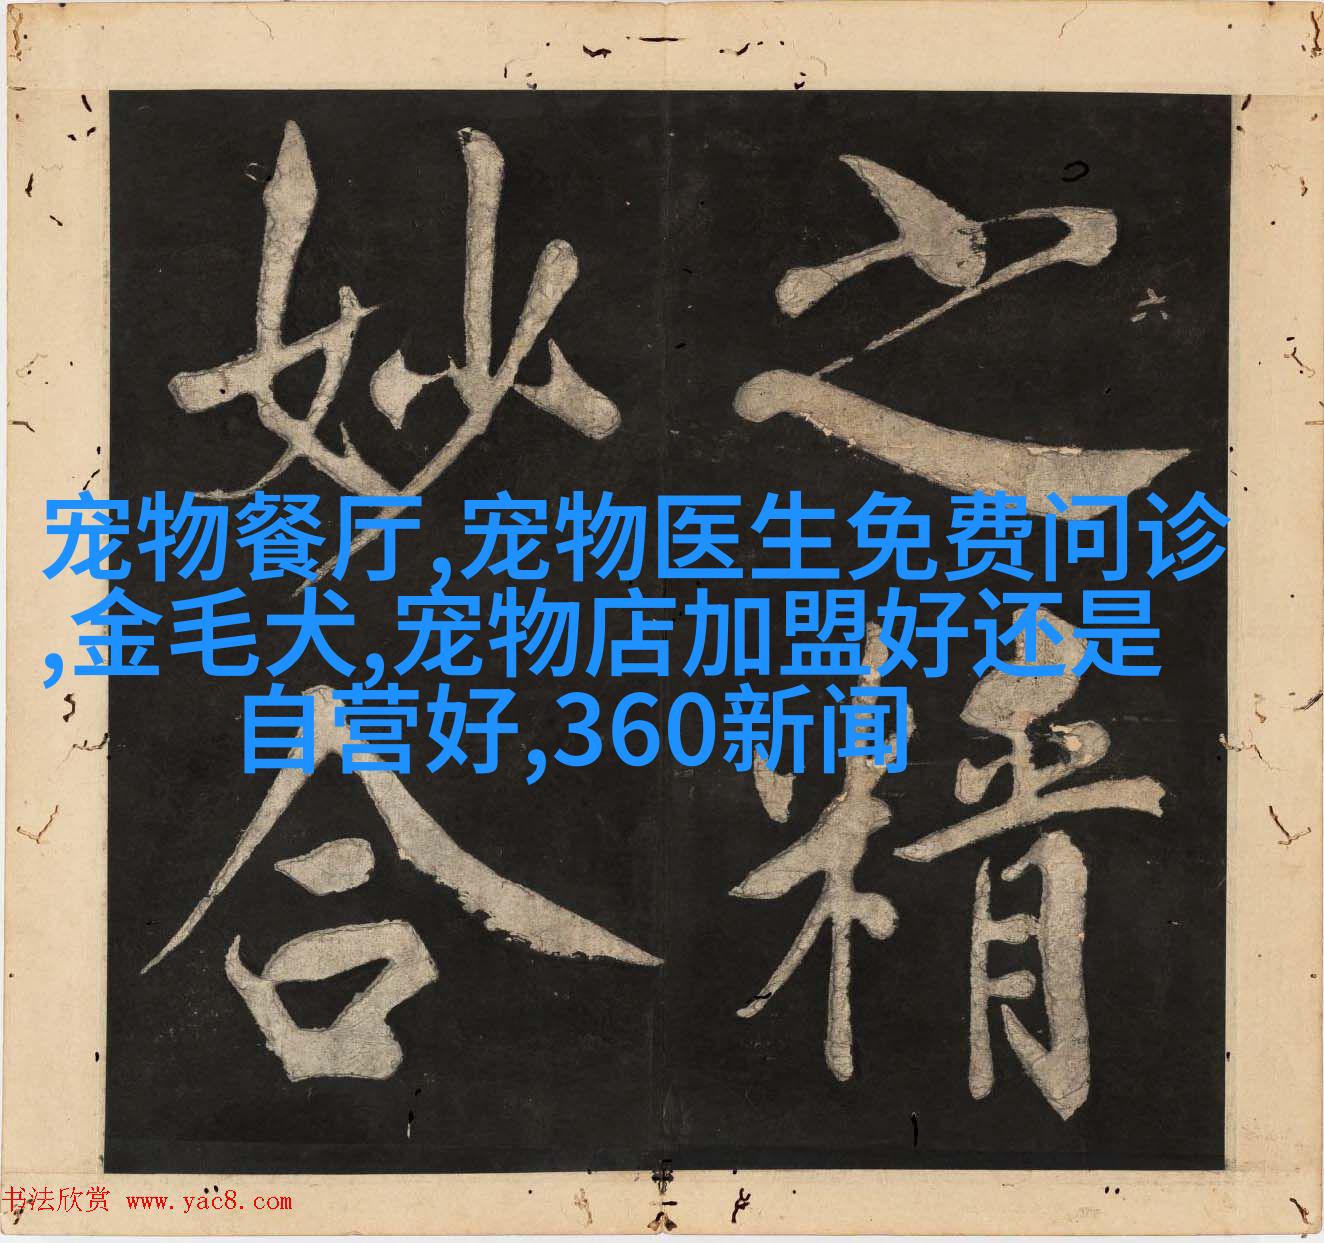 之精
妙合
六
宠物餐厅,宠物医生免费问诊
,金毛犬,宠物店加盟好还是
自营好,360新闻
书法欣赏 www.yac8.com